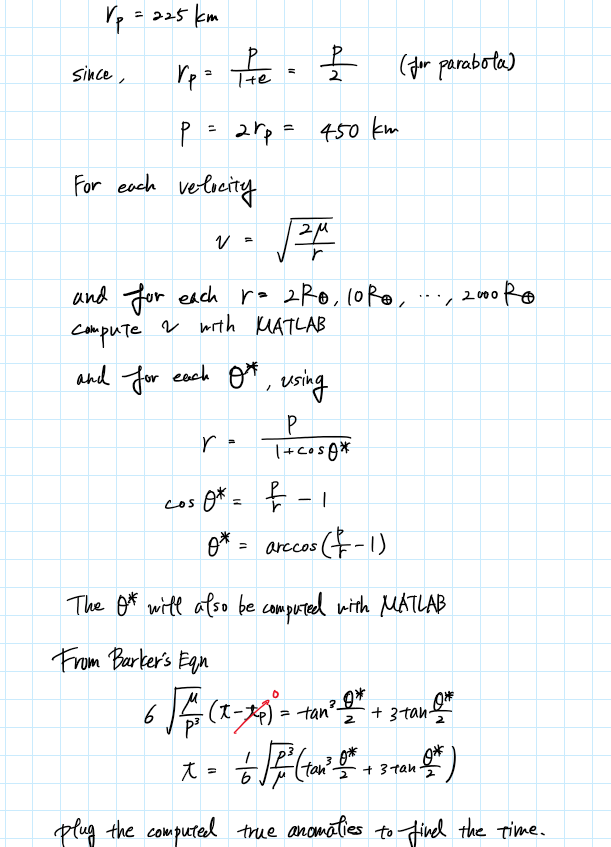 r_p = 225 km
since, r_p = p/(1+e) = p/2 (for parabola)
p = 2r_p = 450 km
For each velocity
v = √(2μ/r)
and for each r = 2R⊕, 10R⊕, ..., 2000R⊕
compute v with MATLAB
and for each θ*, using
r = p/(1+cosθ*)
cos θ* = p/r - 1
θ* = arccos(p/r - 1)
The θ* will also be computed with MATLAB
From Barker's Eqn
6 √(μ/p³) (t - t_p)⁰ = tan³ θ*/2 + 3 tan θ*/2
t = 1/6 √(p³/μ) (tan³ θ*/2 + 3 tan θ*/2)
plug the computed true anomalies to find the time.